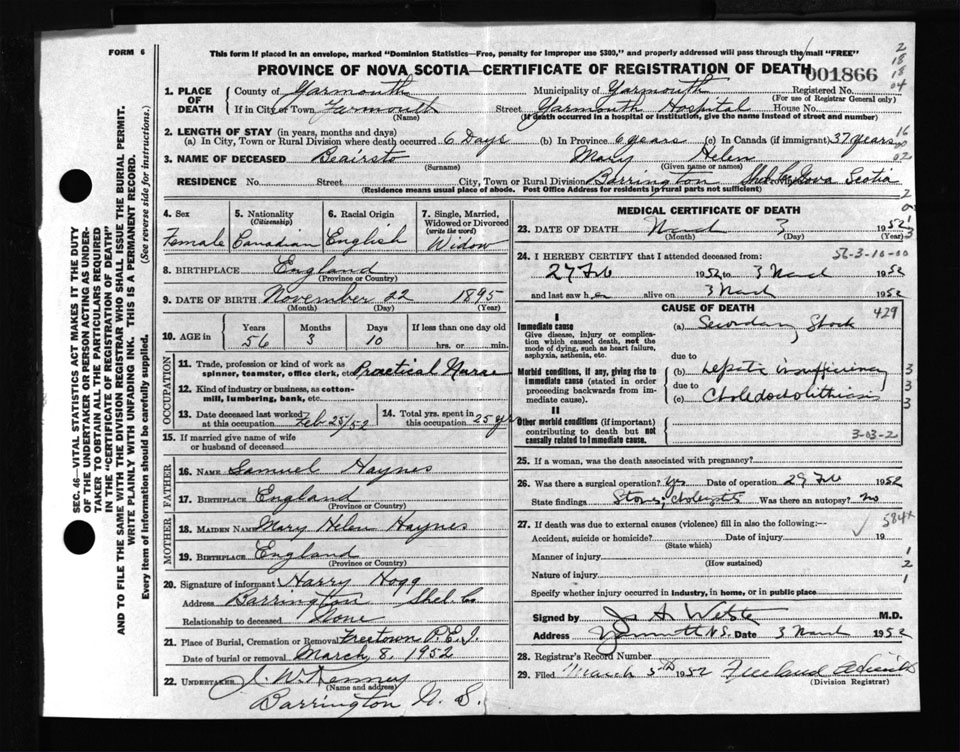 FORM 6
This form if placed in an envelope, marked "Dominion Statistics—Free, penalty for improper use $300," and properly addressed will pass through the mail "FREE"
PROVINCE OF NOVA SCOTIA—CERTIFICATE OF REGISTRATION OF DEATH
001866
1. PLACE OF DEATH
County of Yarmouth Municipality of Yarmouth Registered No.
(For use of Registrar General only)
If in City or Town Yarmouth Street Yarmouth Hospital House No.
(Name) (If death occurred in a hospital or institution, give the name instead of street and number)
2. LENGTH OF STAY (in years, months and days)
(a) In City, Town or Rural Division where death occurred 6 Days (b) In Province 6 years (c) In Canada (if immigrant) 37 years
3. NAME OF DECEASED Beairsto Mary Helen
(Surname) (Given name or names)
RESIDENCE No. Street City, Town or Rural Division Barrington Shel. Co. Nova Scotia
(Residence means usual place of abode. Post Office Address for residents in rural parts not sufficient)
4. Sex
Female
5. Nationality
(Citizenship)
Canadian
6. Racial Origin
English
7. Single, Married, Widowed or Divorced
(write the word)
Widow
8. BIRTHPLACE England
(Province or Country)
9. DATE OF BIRTH November 22 1895
(Month) (Day) (Year)
10. AGE in
Years Months Days If less than one day old
56 3 10 hrs. or min.
OCCUPATION
11. Trade, profession or kind of work as spinner, teamster, office clerk, etc. Practical Nurse
12. Kind of industry or business, as cotton-mill, lumbering, bank, etc.
13. Date deceased last worked at this occupation Feb 25/52
14. Total yrs. spent in this occupation 25 yrs
15. If married give name of wife or husband of deceased
FATHER
16. NAME Samuel Haynes
17. BIRTHPLACE England
(Province or Country)
MOTHER
18. MAIDEN NAME Mary Helen Haynes
19. BIRTHPLACE England
(Province or Country)
20. Signature of informant Harry Hogg
Address Barrington Shel. Co
Relationship to deceased None
21. Place of Burial, Cremation or Removal Freetown P.E.I.
Date of burial or removal March 8, 1952
22. UNDERTAKER J. W. Kenney
(Name and address)
Barrington N. S.
MEDICAL CERTIFICATE OF DEATH
23. DATE OF DEATH March 3 1952
(Month) (Day) (Year)
24. I HEREBY CERTIFY that I attended deceased from: 56-3-10-00
27 Feb 1952 to 3 March 1952
and last saw her alive on 3 March 1952
CAUSE OF DEATH
429
I
Immediate cause
Give disease, injury or complication which caused death, not the mode of dying, such as heart failure, asphyxia, asthenia, etc.
(a) Secondary Shock
due to
Morbid conditions, if any, giving rise to immediate cause (stated in order proceeding backwards from immediate cause).
(b) hepatic insufficiency
due to
(c) Choledocholithiasis
II
Other morbid conditions (if important) contributing to death but not causally related to immediate cause.
3-03-2
25. If a woman, was the death associated with pregnancy?
26. Was there a surgical operation? Yes Date of operation 29 Feb 1952
State findings Stones; Was there an autopsy? no
584x
27. If death was due to external causes (violence) fill in also the following:—
Accident, suicide or homicide? Date of injury 19
(State which)
Manner of injury
(How sustained)
Nature of injury
Specify whether injury occurred in industry, in home, or in public place
Signed by M.D.
Address Yarmouth N.S. Date 3 March 1952
28. Registrar's Record Number
29. Filed March 5th 1952
(Division Registrar)
SEC. 46—VITAL STATISTICS ACT MAKES IT THE DUTY
OF THE UNDERTAKER OR PERSON ACTING AS UNDER-
TAKER TO OBTAIN ALL THE PARTICULARS REQUIRED
IN THE "CERTIFICATE OF REGISTRATION OF DEATH"
AND TO FILE THE SAME WITH THE DIVISION REGISTRAR WHO SHALL ISSUE THE BURIAL PERMIT.
WRITE PLAINLY WITH UNFADING INK. THIS IS A PERMANENT RECORD.
Every item of information should be carefully supplied. (See reverse side for instructions.)